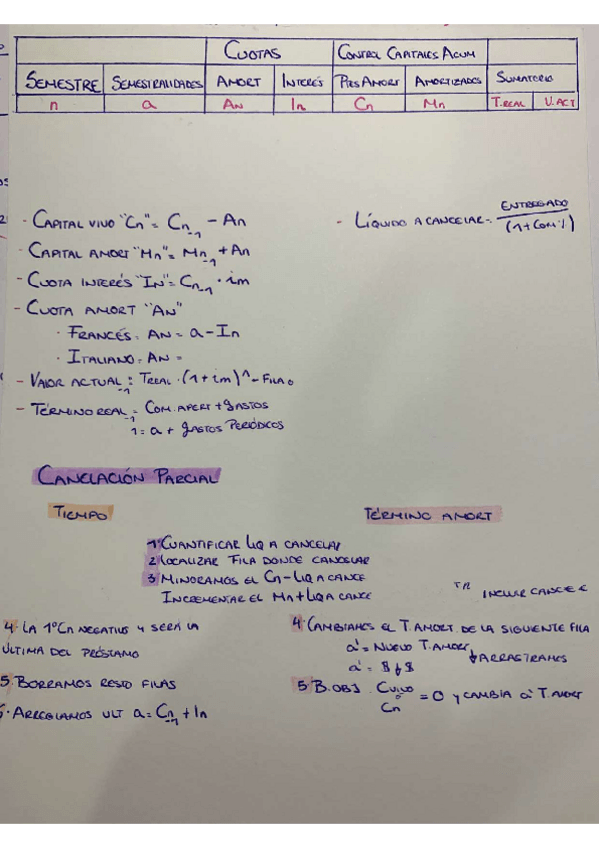 CUOTAS CONTROL CAPITALES ACUM
SEMESTRE SEMESTRALIDADES AMORT INTERÉS PTES AMORT AMORTIZADOS SUMATORIO
n a An In Cn Mn T.REAL V.ACT
- CAPITAL VIVO "Cn" = Cn-1 - An
- LÍQUIDO A CANCELAR = ENTREGADO / (1+COM%)
- CAPITAL AMORT "Mn" = Mn-1 + An
- CUOTA INTERÉS "IN" = Cn-1 · im
- CUOTA AMORT "AN"
· FRANCÉS: AN = a - In
· ITALIANO: AN =
- VALOR ACTUAL = TREAL · (1+im)^ - FILA 0
- TÉRMINO REAL = COM. APERT + gASTOS
1 = a + gASTOS PERIÓDICOS
CANCLACIÓN PARCIAL
TIEMPO
TÉRMINO AMORT
1º CUANTIFICAR LIQ A CANCELAR
2 LOCALIZAR FILA DONDE CANCELAR
3 MINORAMOS EL Cn - LIQ A CANCE
INCREMENTAR EL Mn + LIQ A CANCE
TR INCLUIR CANCE €
4. LA 1º Cn NEGATIVO Y SERÁ LA
ÚLTIMA DEL PRÉSTAMO
5. BORRAMOS RESTO FILAS
6. ARREGLAMOS ULT a = Cn-1 + In
4. CAMBIAMOS EL T. AMORT. DE LA SIGUIENTE FILA
a' = NUEVO T. AMORT
ARRASTRAMOS
a' = $ $
5. B. OBJ. CUIVO Cn = 0 Y CAMBIA a' T. AMORT